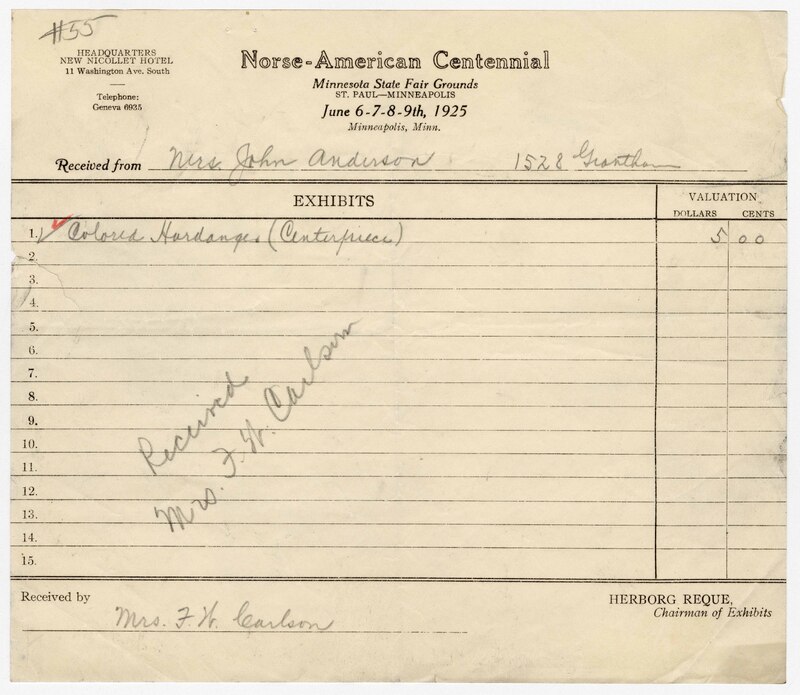 #55
HEADQUARTERS
NEW NICOLLET HOTEL
11 Washington Ave. South
Telephone:
Geneva 6935
Norse-American Centennial
Minnesota State Fair Grounds
ST. PAUL—MINNEAPOLIS
June 6-7-8-9th, 1925
Minneapolis, Minn.
Received from Mrs. John Anderson 1528 Grantham
EXHIBITS
VALUATION
DOLLARS CENTS
1. Colored Hardanger (Centerpiece) 5 00
2.
3.
4.
5.
6.
7.
8.
9.
10.
11.
12.
13.
14.
15.
Received
Mrs. F. W. Carlson
Received by Mrs. F. W. Carlson
HERBORG REQUE,
Chairman of Exhibits